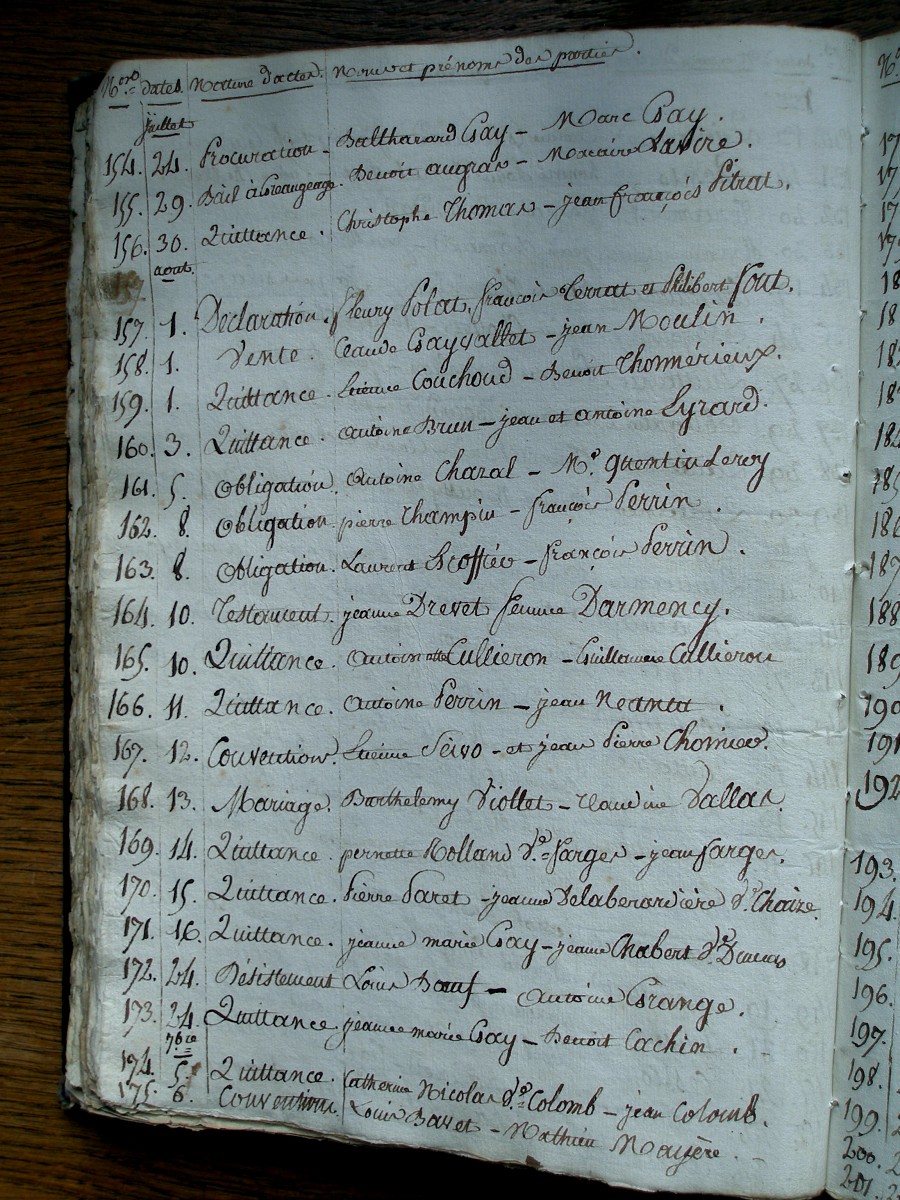 N.ros dates Nature d'actes. Noms et prénoms des parties.
juillet
154. 24. Procuration - Balthazard Gay - Marc Gay.
155. 29. Bail à Benoit augras - Macaire Lavire.
156. 30. Quittance. Christophe Thomas - jean françois Pitrat.
aout.
157. 1. Déclaration. fleury Polat, françois Terrat et Philibert Fout.
158. 1. Vente. Claude Gayvallet - jean Moulin.
159. 1. Quittance. Etienne Couchoud - Benoit Thonnérieux.
160. 3. Quittance. antoine Brun - jean et antoine Eyrard.
161. 5. Obligation. antoine Chazal - M.e quentin Leroy
162. 8. Obligation. pierre Champin - françois Perrin.
163. 8. Obligation. Laurent Escoffier - françois Perrin.
164. 10. Testament. jeanne Drevet femme Darmency.
165. 10. Quittance. antoinette Cullieron - Guillaume Cullieron
166. 11. Quittance. antoine Perrin - jean
167. 12. Convention. Etienne Servo - et jean Pierre Chomier.
168. 13. Mariage. Barthelemy Viollet - Claudine Vallas.
169. 14. Quittance. pernette Rolland V.e Farges - jean farges.
170. 15. Quittance. Pierre Paret - jeanne Delaberardière V.e Chaize.
171. 16. Quittance. jeanne marie Gay - jeanne Chabert V.e Dumas
172. 24. Désistement Louis Bœuf - antoine Grange.
173. 24. Quittance. jeanne marie Gay - Benoit Cachin.
7bre
174. 5. Quittance. Catherine Nicolas V.e Colomb - jean Colomb.
175. 6. Convention. Louis Bavet - Mathieu Mayère.
193.
194.
195.
196.
197.
198.
199.
200.
201.